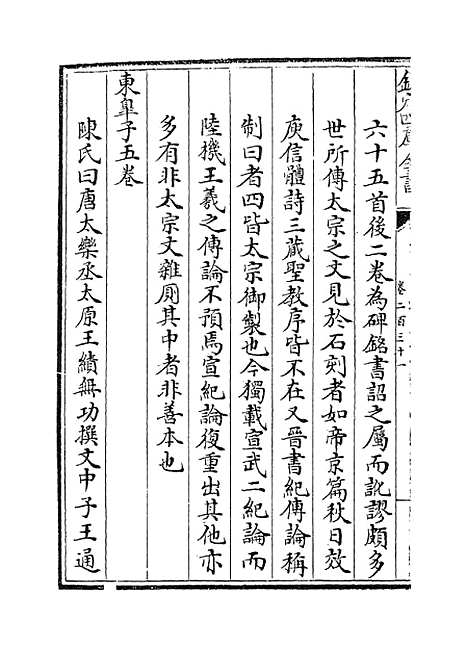 欽定四庫全書
卷二百三十一
六十五首後二卷為碑銘書詔之屬而訛謬頗多
世所傳太宗之文見於石刻者如帝京篇秋日效
庾信體詩三藏聖教序皆不在又晉書紀傳論稱
制曰者四皆太宗御製也今獨載宣武二紀論而
陸機王羲之傳論不預焉宣紀論復重出其他亦
多有非太宗文雜厠其中者非善本也
東臯子五卷
陳氏曰唐太樂丞太原王績無功撰文中子王通